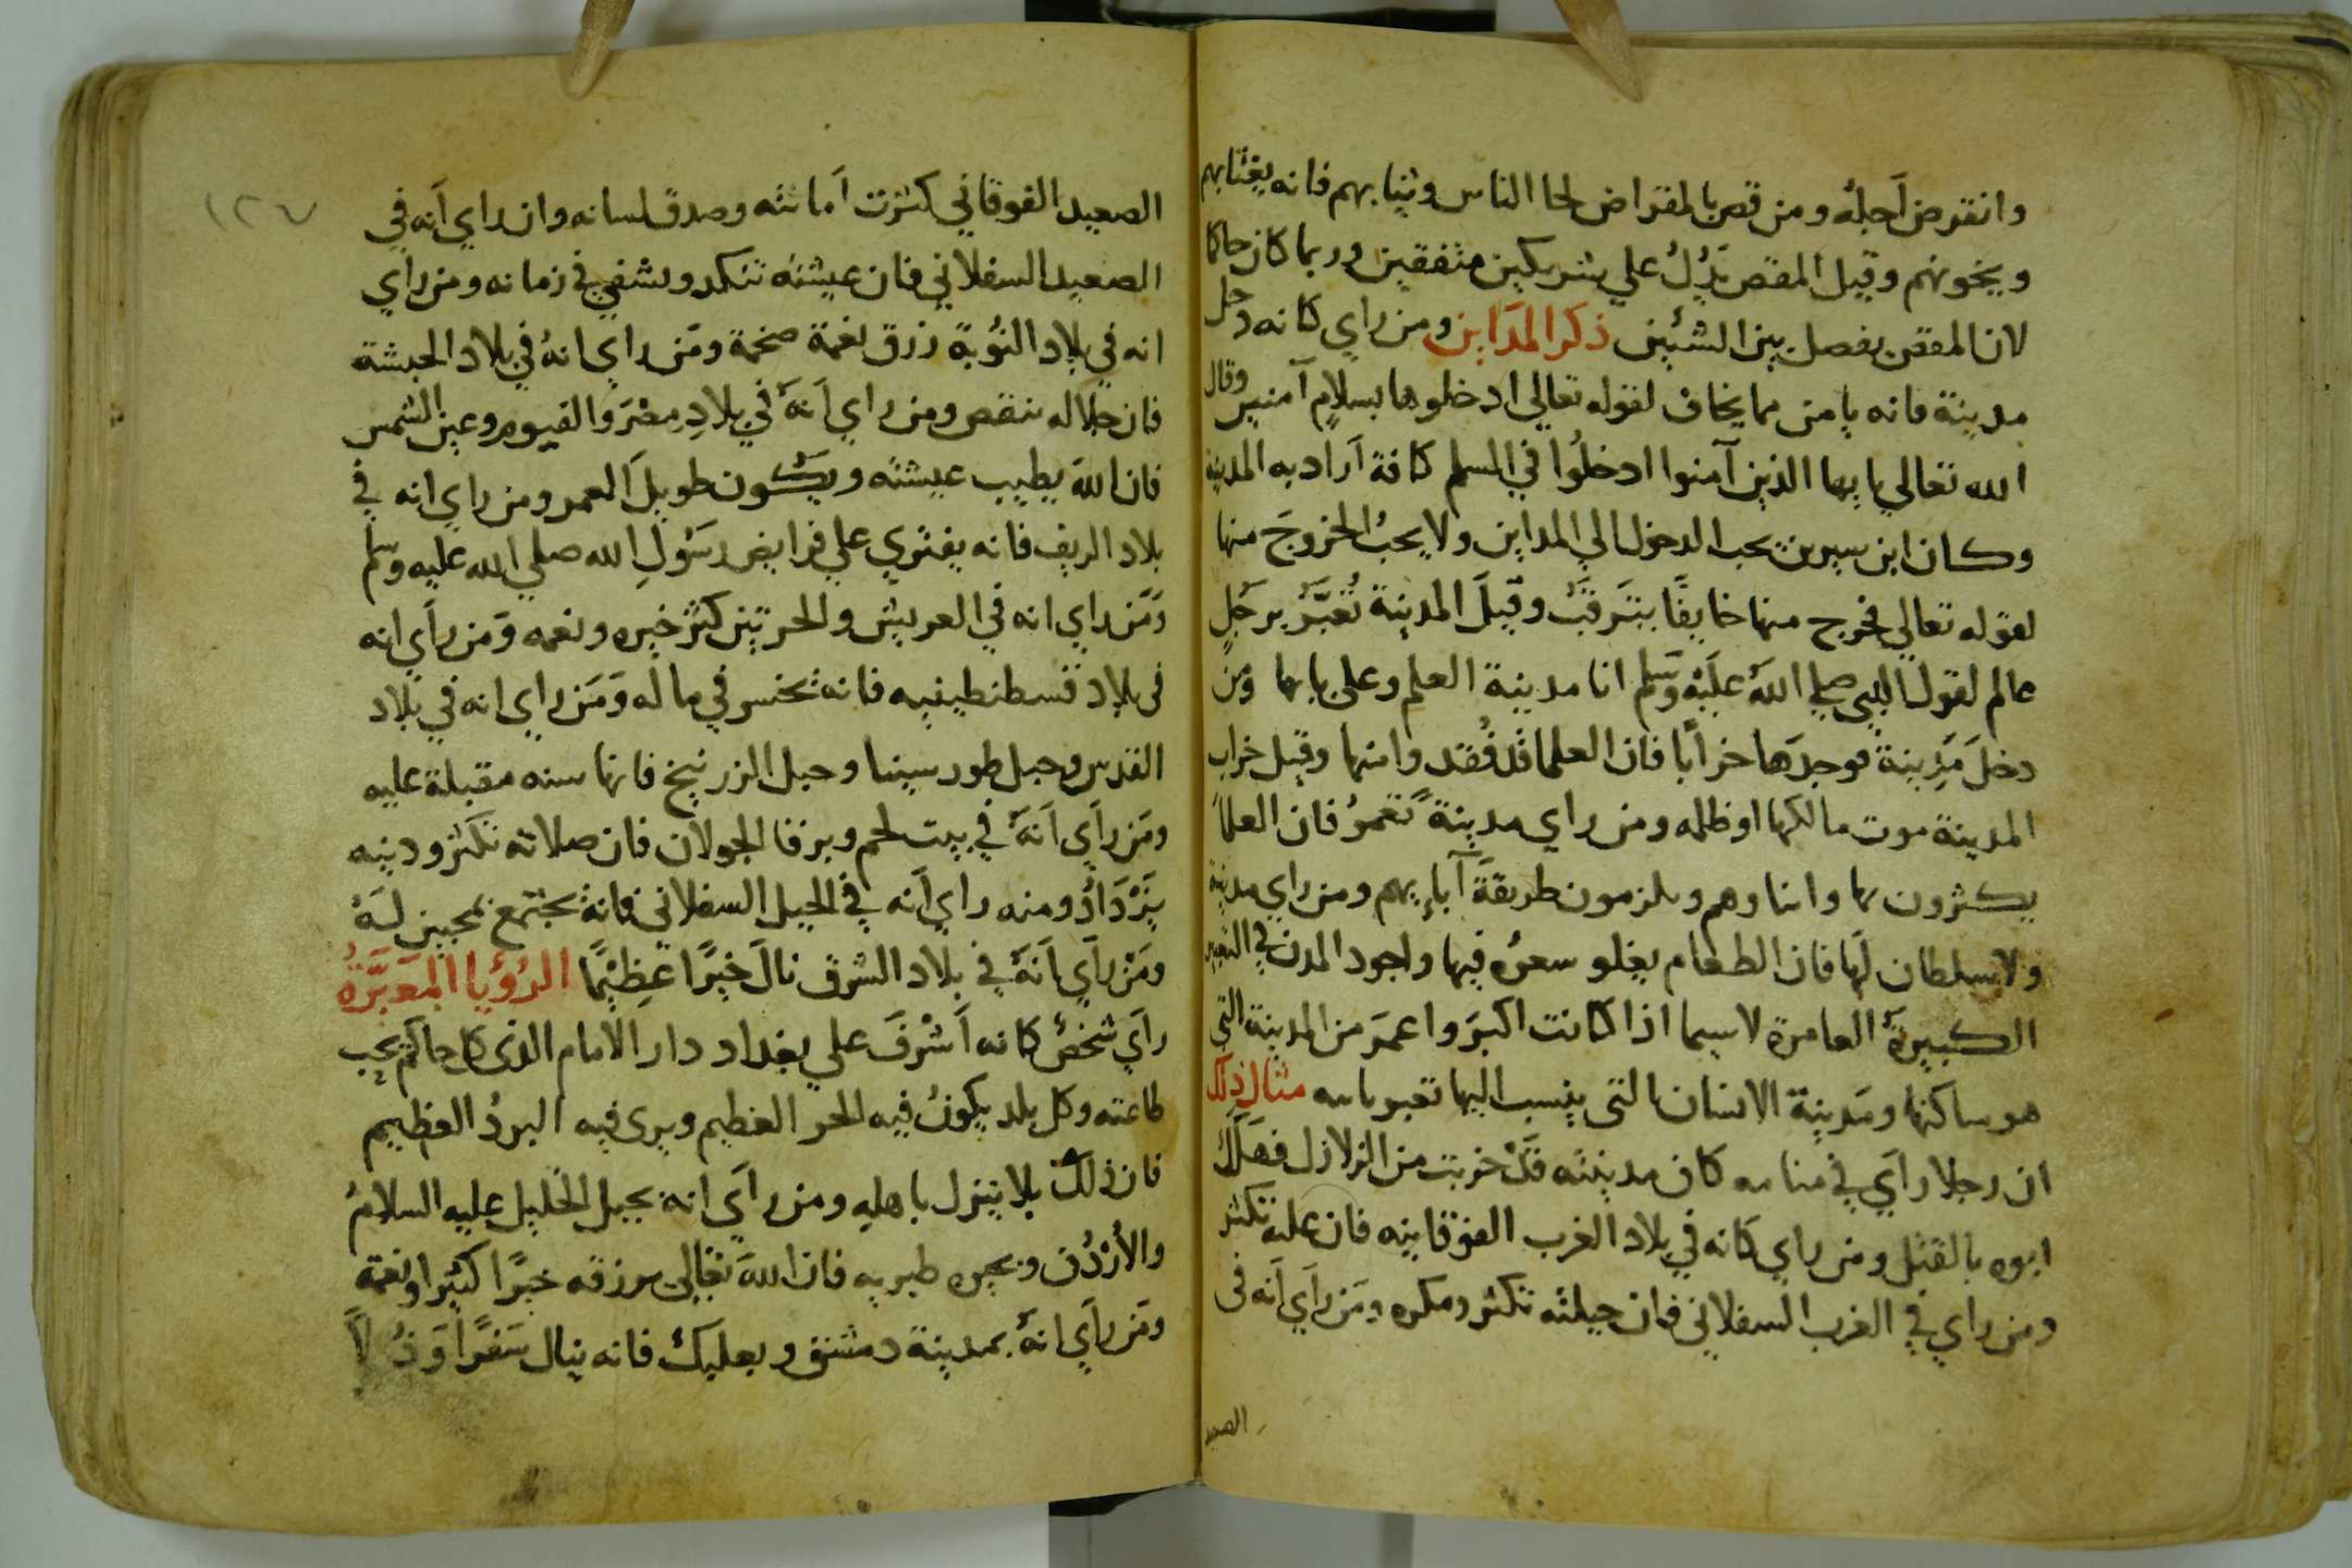 وانقرض اَجله ومن قص بالمقراض لحا الناس وثيابهم فانه يغتابهم
ويخونهم وقيل المقص يَدُلُ علي شريكين متفقين وربما كان حاكما
لان المقص يفصل بين الشئين ذكر المدَاين ومن راي كانه دخل
مدينة فانه يامن مما يخاف لقوله تعالي ادخلوها بسلامٍ آمنين وقال
الله تعالي يا يها الذين آمنوا ادخلُوا في السلم كافة اَراد به المدينة
وكان ابن سيرين يحب الدخول الي المداين ولا يحبُ الخروجَ منها
لقوله تعالي فخرج منها خايفًا يتَرقبُ وقيلَ المدينة تُعَبَّرُ برجُلٍ
عالم لقول النبي صلي اللهَ عليْه وسَلم انا مدينة العلم وعلى بابها وَمن
دخلَ مَدِينة فوجدَها خراَبًا فان العلما قد فُقدوا منها وقيل خراب
المدينة موت مالكها او ظلمه ومن راي مدينة تعمرُ فان العلما
يكثرون بها وابناوهم ويلزمون طريقةَ آباءِيهم ومن راي مدينة
ولا سلطان لهَا فان الطعام يغلو سعره فيها واجود المدن في التعبير
الكبيرَة العامرة لاسيما اذا كانت اكبرَ واعمرَ من المدينة التي
هو ساكنها ومَدينة الانسان التى ينسب اليها تعبر باسه مثال ذلك
ان رجلا رايَ في منامه كان مدينته قَدْ خربت من الزلازل فهَلَكَ
ابوه بالقتل ومن راي كانه في بلاد الغرب الفوقانيه فان عليه تكثر
ومن راي في الغرب السفلاني فان حيلته تكثر ومكره ومَن راَي اَنه فى
الصعيد
١٢٧
الصعيد الفوقاني كثرت اَمانته وصدق لسانه وان راي اَنه في
الصعيد السفلاني فان عيشته تنكد ويشقي في زمانه ومن راَي
انه في بلاد النُوبة رزق نعمة ضخمة ومَن راي انهُ في بلاد الحبشة
فان حلاله ينقص ومن راي اَنهَ في بلادِ مِصْرَ والفيوم وعين الشمس
فان اللهَ يطيب عيشته ويكون طويلَ العمر ومن راي انه في
بلاد الريف فانه يفتري علي فرايض رسَولِ الله صلي الله عليه وسلم
ومَن راي انه في العريش والحرتين كثر خيره ونعمه وَمن راَي انه
فى بلاد قسطنطينيه فانه يخسر في ماله وَمَن راي انه في بلاد
القدس وجبل طور سينا وجبل الزرنيخ فانها سنه مقبلة عليه
ومَن راَي اَنهَ في بيت لحم وبرفا الجولان فان صلاته تكثر ودينه
يَزْدَادُ ومنه راي اَنه في الجبل السفلاني فانهُ يجتمع بمحبين لهَ
ومَنْ راَي اَنهَ في بلاد الشرق نالَ خيرًا عظِيْمًا الرُؤيا المعَبَّرَةُ
راَي شخصُ كانه اَشْرفَ علي بغداد دار الاَمام الذى كل حاكم تحب
طاعته وكل بلد يكونُ فيه الحر العظيم ويرى فيه البردُ العظيم
فان ذلك بلا ينزل باهلِه ومن راَي انه بجبل الخليل عليه السلامُ
والاُرْدُن وبحره طبريه فان اللهَ تعَالى يرزقه خيرًا كثيرا ونعمة
ومَن راَي انهَ بمدينة دمشق وبعلبك فانه ينال سَفرًا وَذُلاً